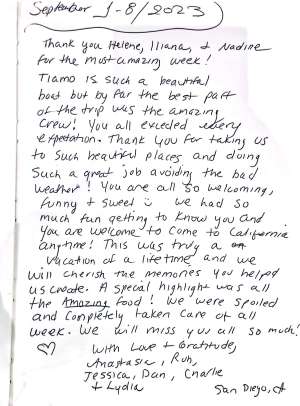 September 1-8/2023
Thank you Helene, Iliana, + Nadine
for the most amazing week!
Tiamo is such a beautiful
boat but by far the best part
of the trip was the amazing
crew! You all exceeded every
expectation. Thank you for taking us
to such beautiful places and doing
such a great job avoiding the bad
weather! You are all so welcoming,
funny + sweet ☺ we had so
much fun getting to know you and
you are welcome to come to California
anytime! This was truly a
vacation of a lifetime and we
will cherish the memories you helped
us create. A special highlight was all
the Amazing food! We were spoiled
and completely taken care of all
week. We will miss you all so much!
♡ With Love + Gratitude,
Anastasia, Ruh,
Jessica, Dan, Charlie
+ Lydia
San Diego, CA